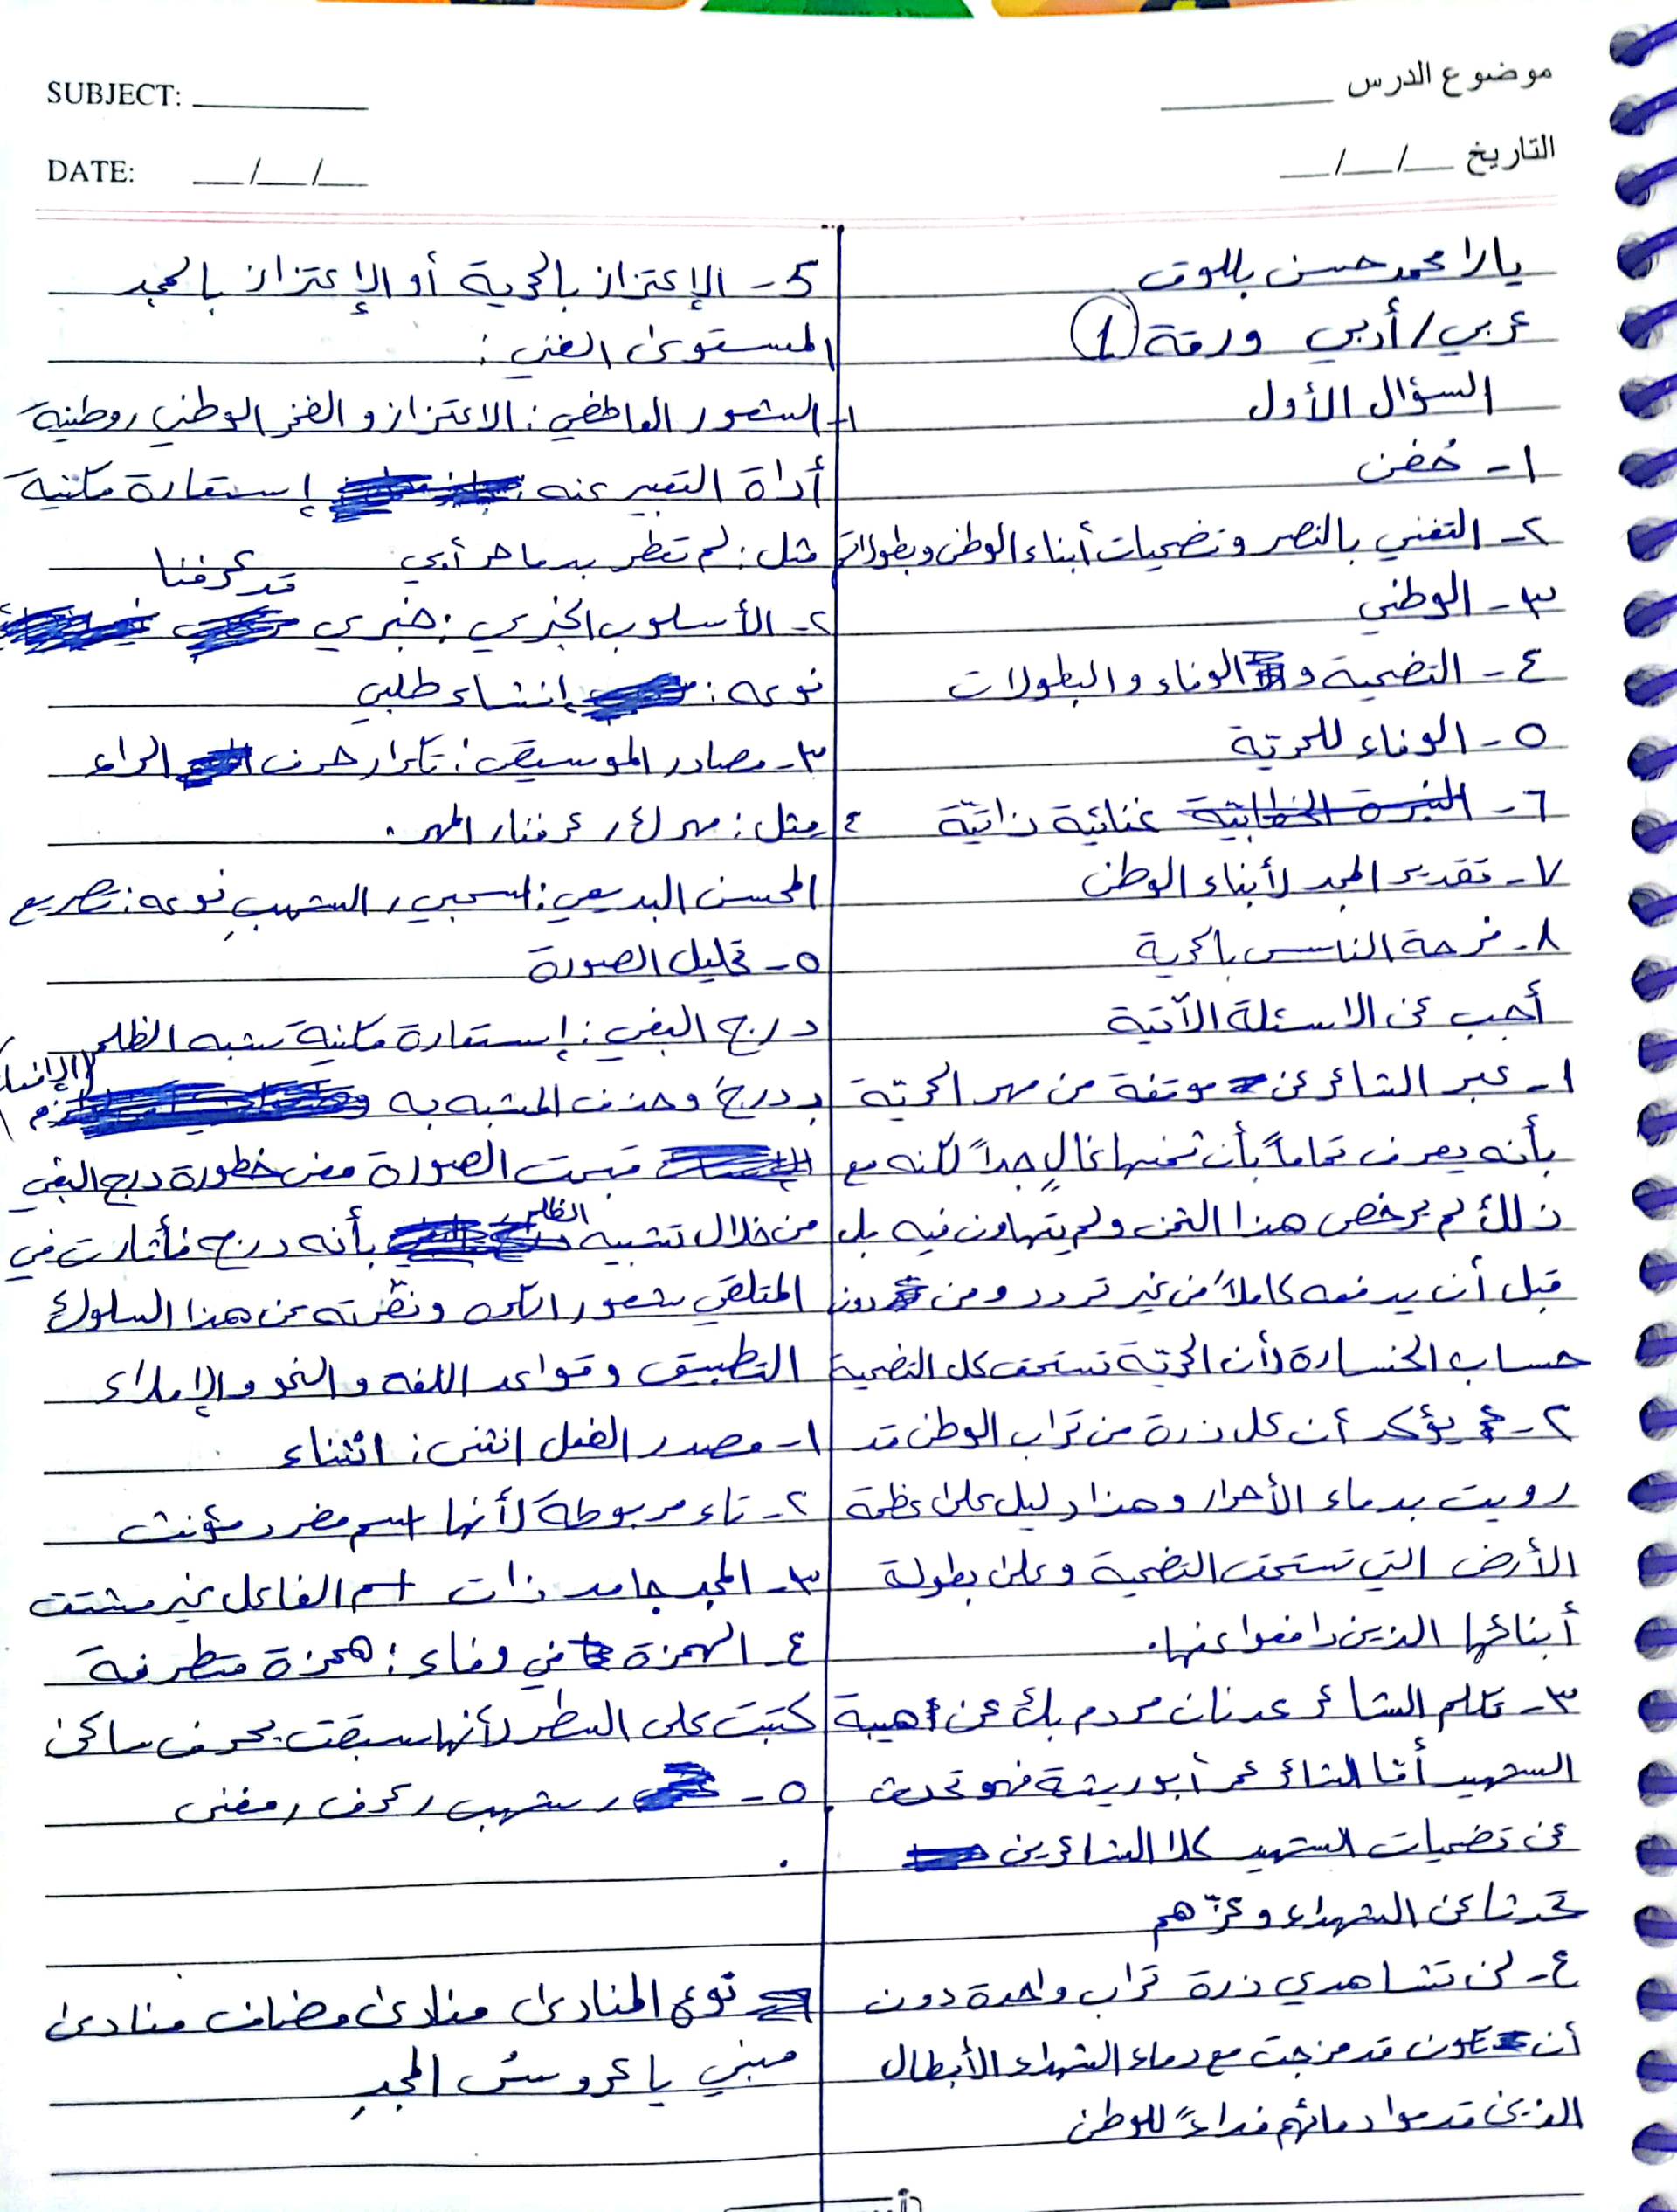 SUBJECT:
موضوع الدرس
DATE: __/__/__
التاريخ __/__/__
يارا محمد حسن
عربي/أدبي ورقة ①
السؤال الأول
٢- التغني بالنصر وتضحيات أبناء الوطن
٣- الوطني
٤- التضحية و الوفاء والبطولات
٥- الوفاء للحريّة
٦- غنائية ذاتيّة
٧- تقدير المجد لأبناء الوطن
٨- فرحة الناس بالحرية
أجب عن الاسئلة الآتية
١- عبر الشاعر عن موقفة من مهر الحريّة
بأنه يعرف تماماً بأن ثمنها غالٍ جداً لكنه مع
ذلك لم يرخص هذا الثمن ولم يتهاون فيه بل
قبل أن يدفعه كاملاً من غير تردد ومن دون
حساب الخسارة لأن الحريّة تستحق كل التضحية
٢- يؤكد أن كل ذرة من تراب الوطن قد
رويت بدماء الأحرار وهذا دليل على عظمة
الأرض التي تستحق التضحية وعلى بطولة
أبنائها الذين دافعوا عنها.
٣- تكلم الشاعر عدنان مردم بك عن هيبة
الشهيد أمّا الشاعر عمر أبو ريشة فهو تحدث
عن تضحيات الشهيد كلا الشاعرين
تحدثا عن الشهداء و عزّهم
٤- لن تشاهدي ذرة تراب واحدة دون
أن تكون قد مزجت مع دماء الشهداء الأبطال
الذين قدموا دمائهم فداءً للوطن
5- الإعتزاز بالحرية أو الإعتزاز بالمجد
المستوى الفني :
١- الشعور العاطفي : الاعتزاز و الفخر الوطني , وطنية
أداة التعبير عنه : إستعارة مكنية
مثل : لم تعطر بدما حر أبي
٢- الأسلوب الخبري : خبري قد عرفنا
نوعه : إنشاء طلبي
٣- مصادر الموسيقى : تكرار حرف الراء
مثل : مهرك , عرفنا , المهر .
٤ المحسن البديعي : اسحبي , الشهب نوعه : تصريع
٥- تحليل الصورة
درج البغي : إستعارة مكنية شبه الظلم
بدرج وحذف المشبه به
قبحت الصورة معنى خطورة درج البغي
من خلال تشبيه الظلم بأنه درج فأثارت في
المتلقي شعور الكره ونفّرته عن هذا السلوك
التطبيق وقواعد اللغة و النحو و الإملاء
١- مصدر الفعل انثنى : انثناء
٢- تاء مربوطة لأنها اسم مفرد مؤنث
٣- المجد جامد ذات اسم الفاعل غير مشتق
٤- الهمزة في وفاء : همزة متطرفة
كتبت على السطر لأنها سبقت بحرف ساكن
٥- شهب , عرف , مغنى
نوع المنادى منادى مضاف منادى
مبني يا عروسُ المجدِ